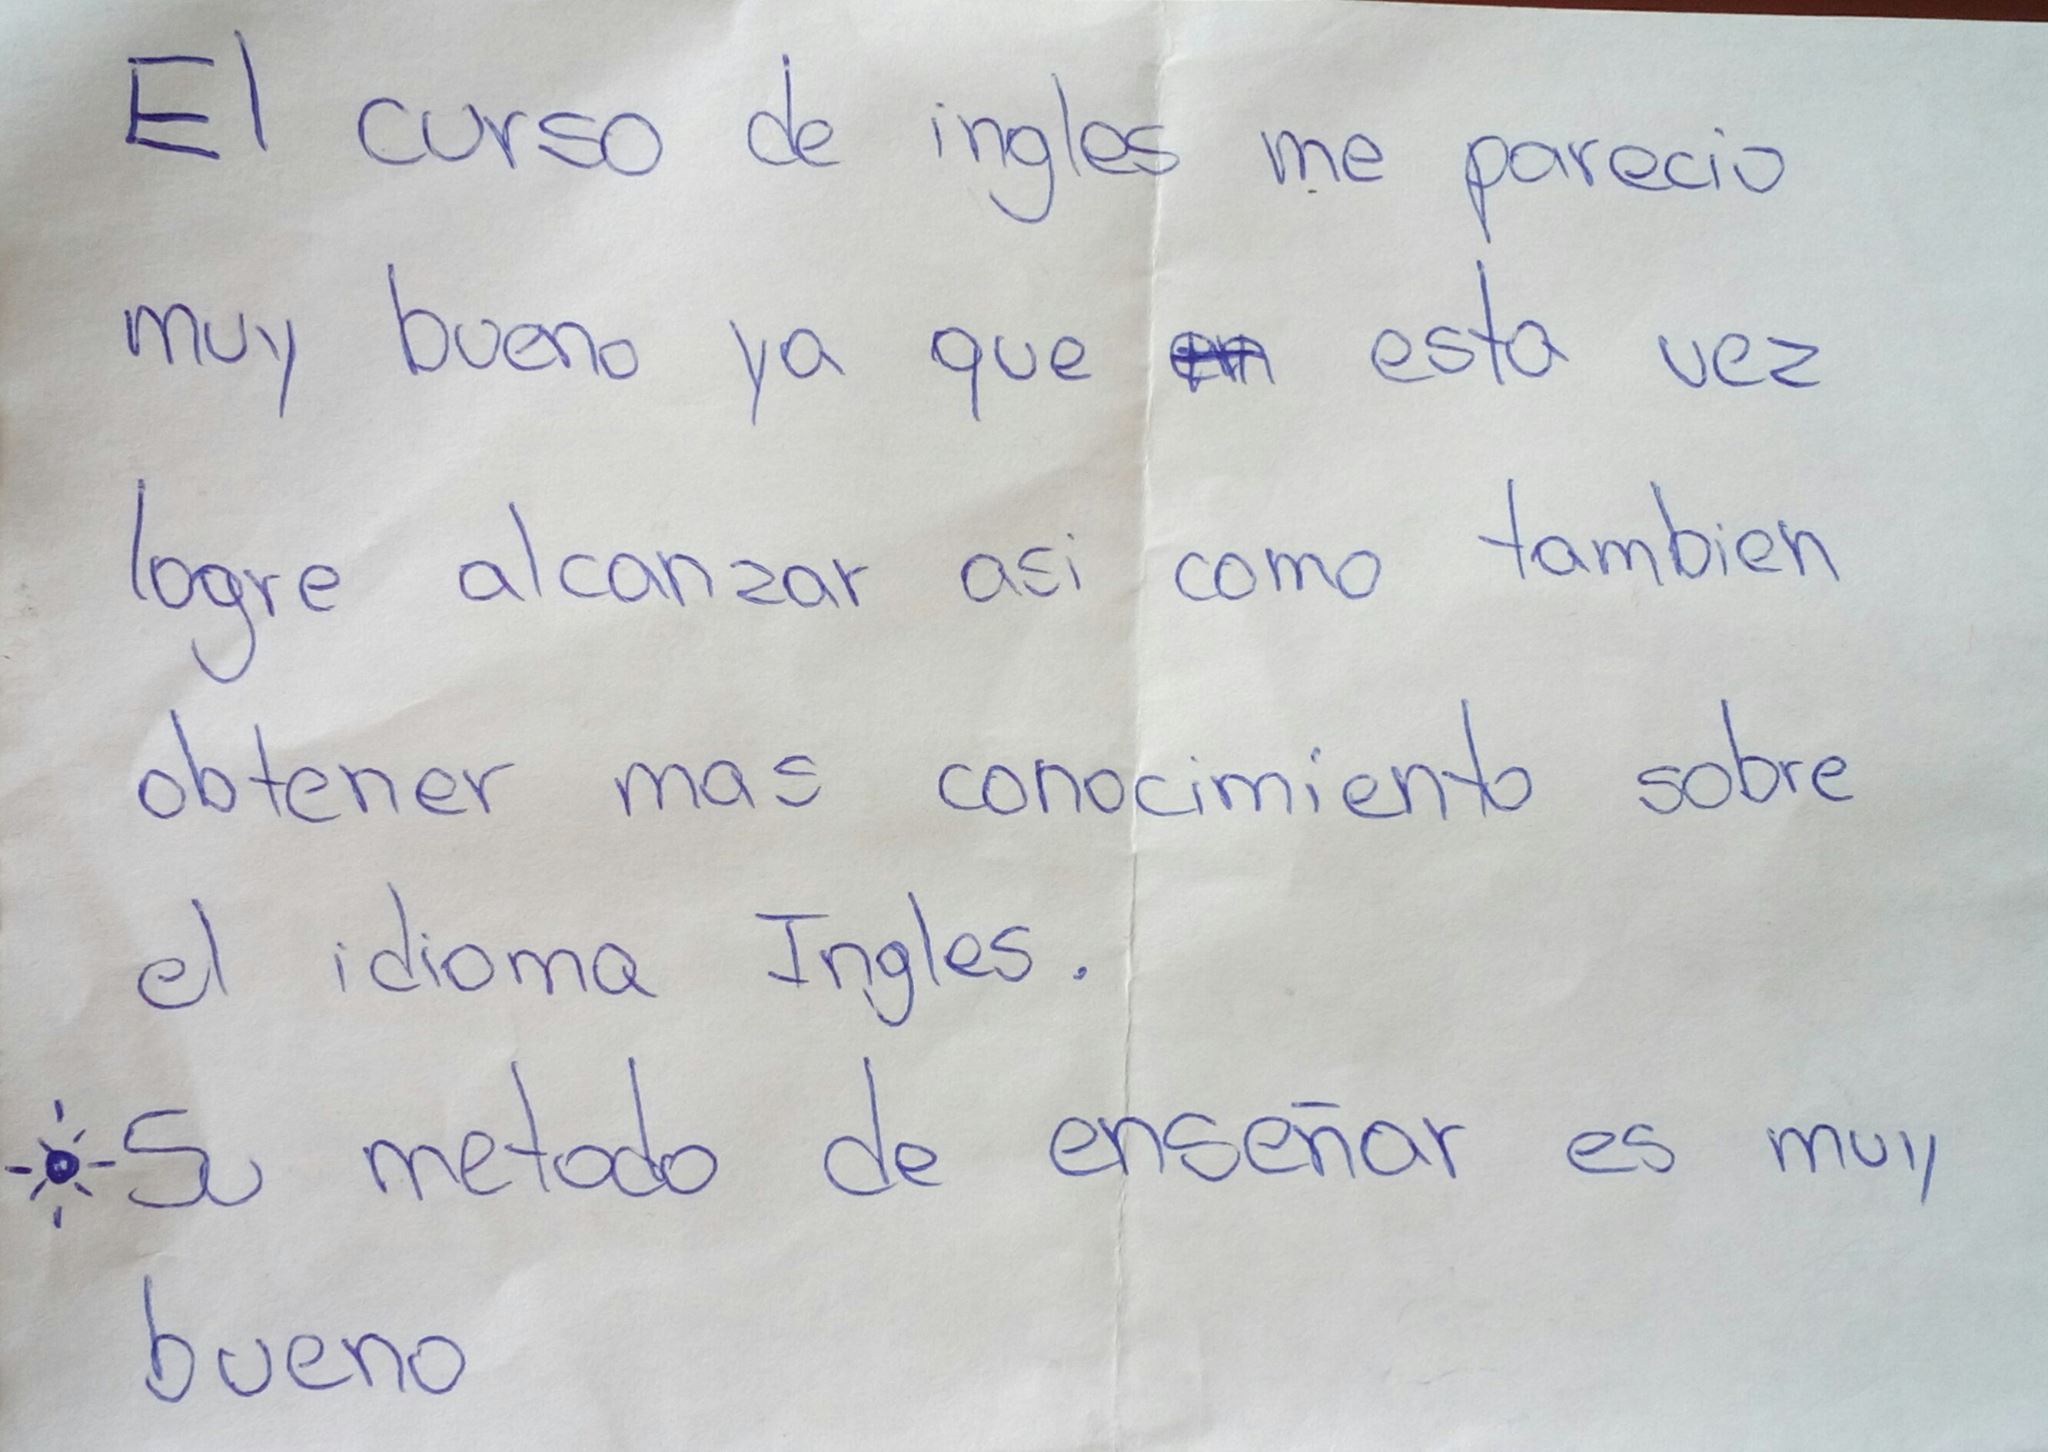 El curso de ingles me parecio
muy bueno ya que en esta vez
logre alcanzar asi como tambien
obtener mas conocimiento sobre
el idioma Ingles.
Su metodo de enseñar es muy
bueno